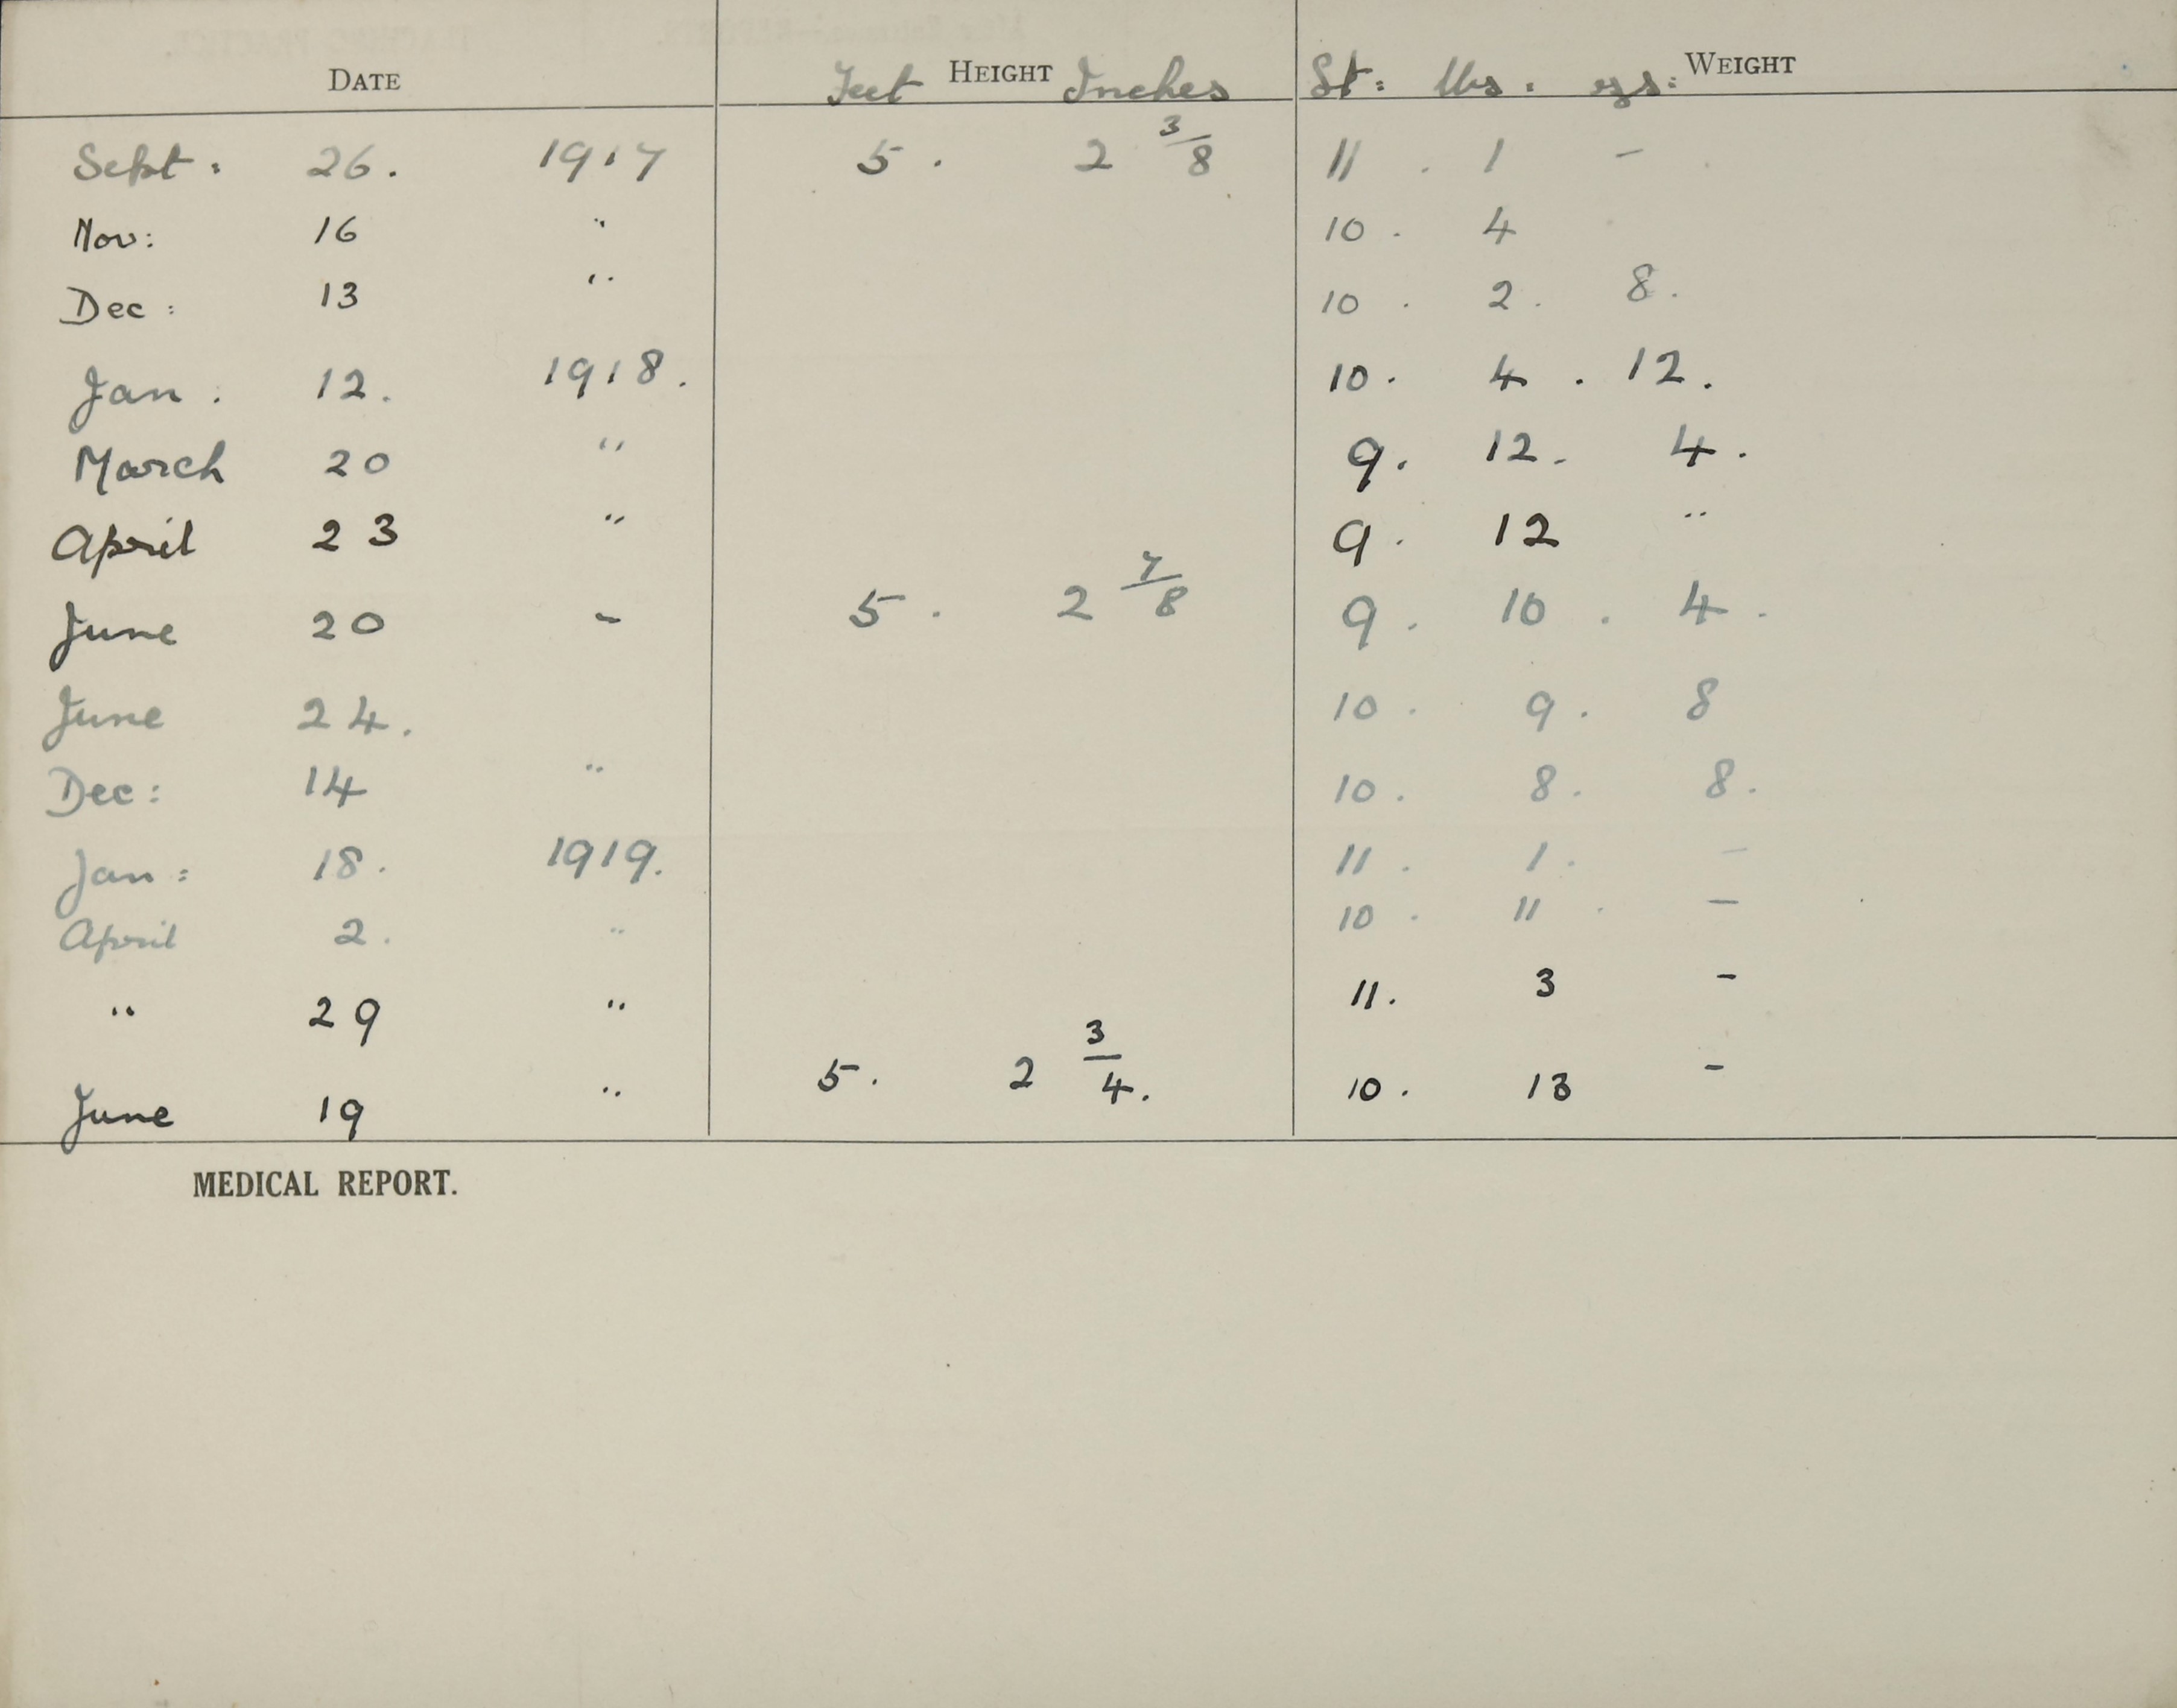 DATE Feet HEIGHT Inches St: lbs. ozs: WEIGHT
Sept: 26. 1917 5. 2 3/8 11 . 1 -
Nov: 16 " 10 . 4
Dec: 13 " 10 . 2. 8.
Jan: 12. 1918. 10. 4 . 12.
March 20 " 9. 12. 4.
April 23 " 9. 12 "
June 20 - 5. 2 7/8 9. 10 . 4.
June 24. 10. 9. 8
Dec: 14 " 10. 8. 8.
Jan: 18. 1919. 11. 1. -
April 2. " 10. 11 . -
" 29 " 11. 3 -
June 19 " 5. 2 3/4. 10. 13 -
MEDICAL REPORT.